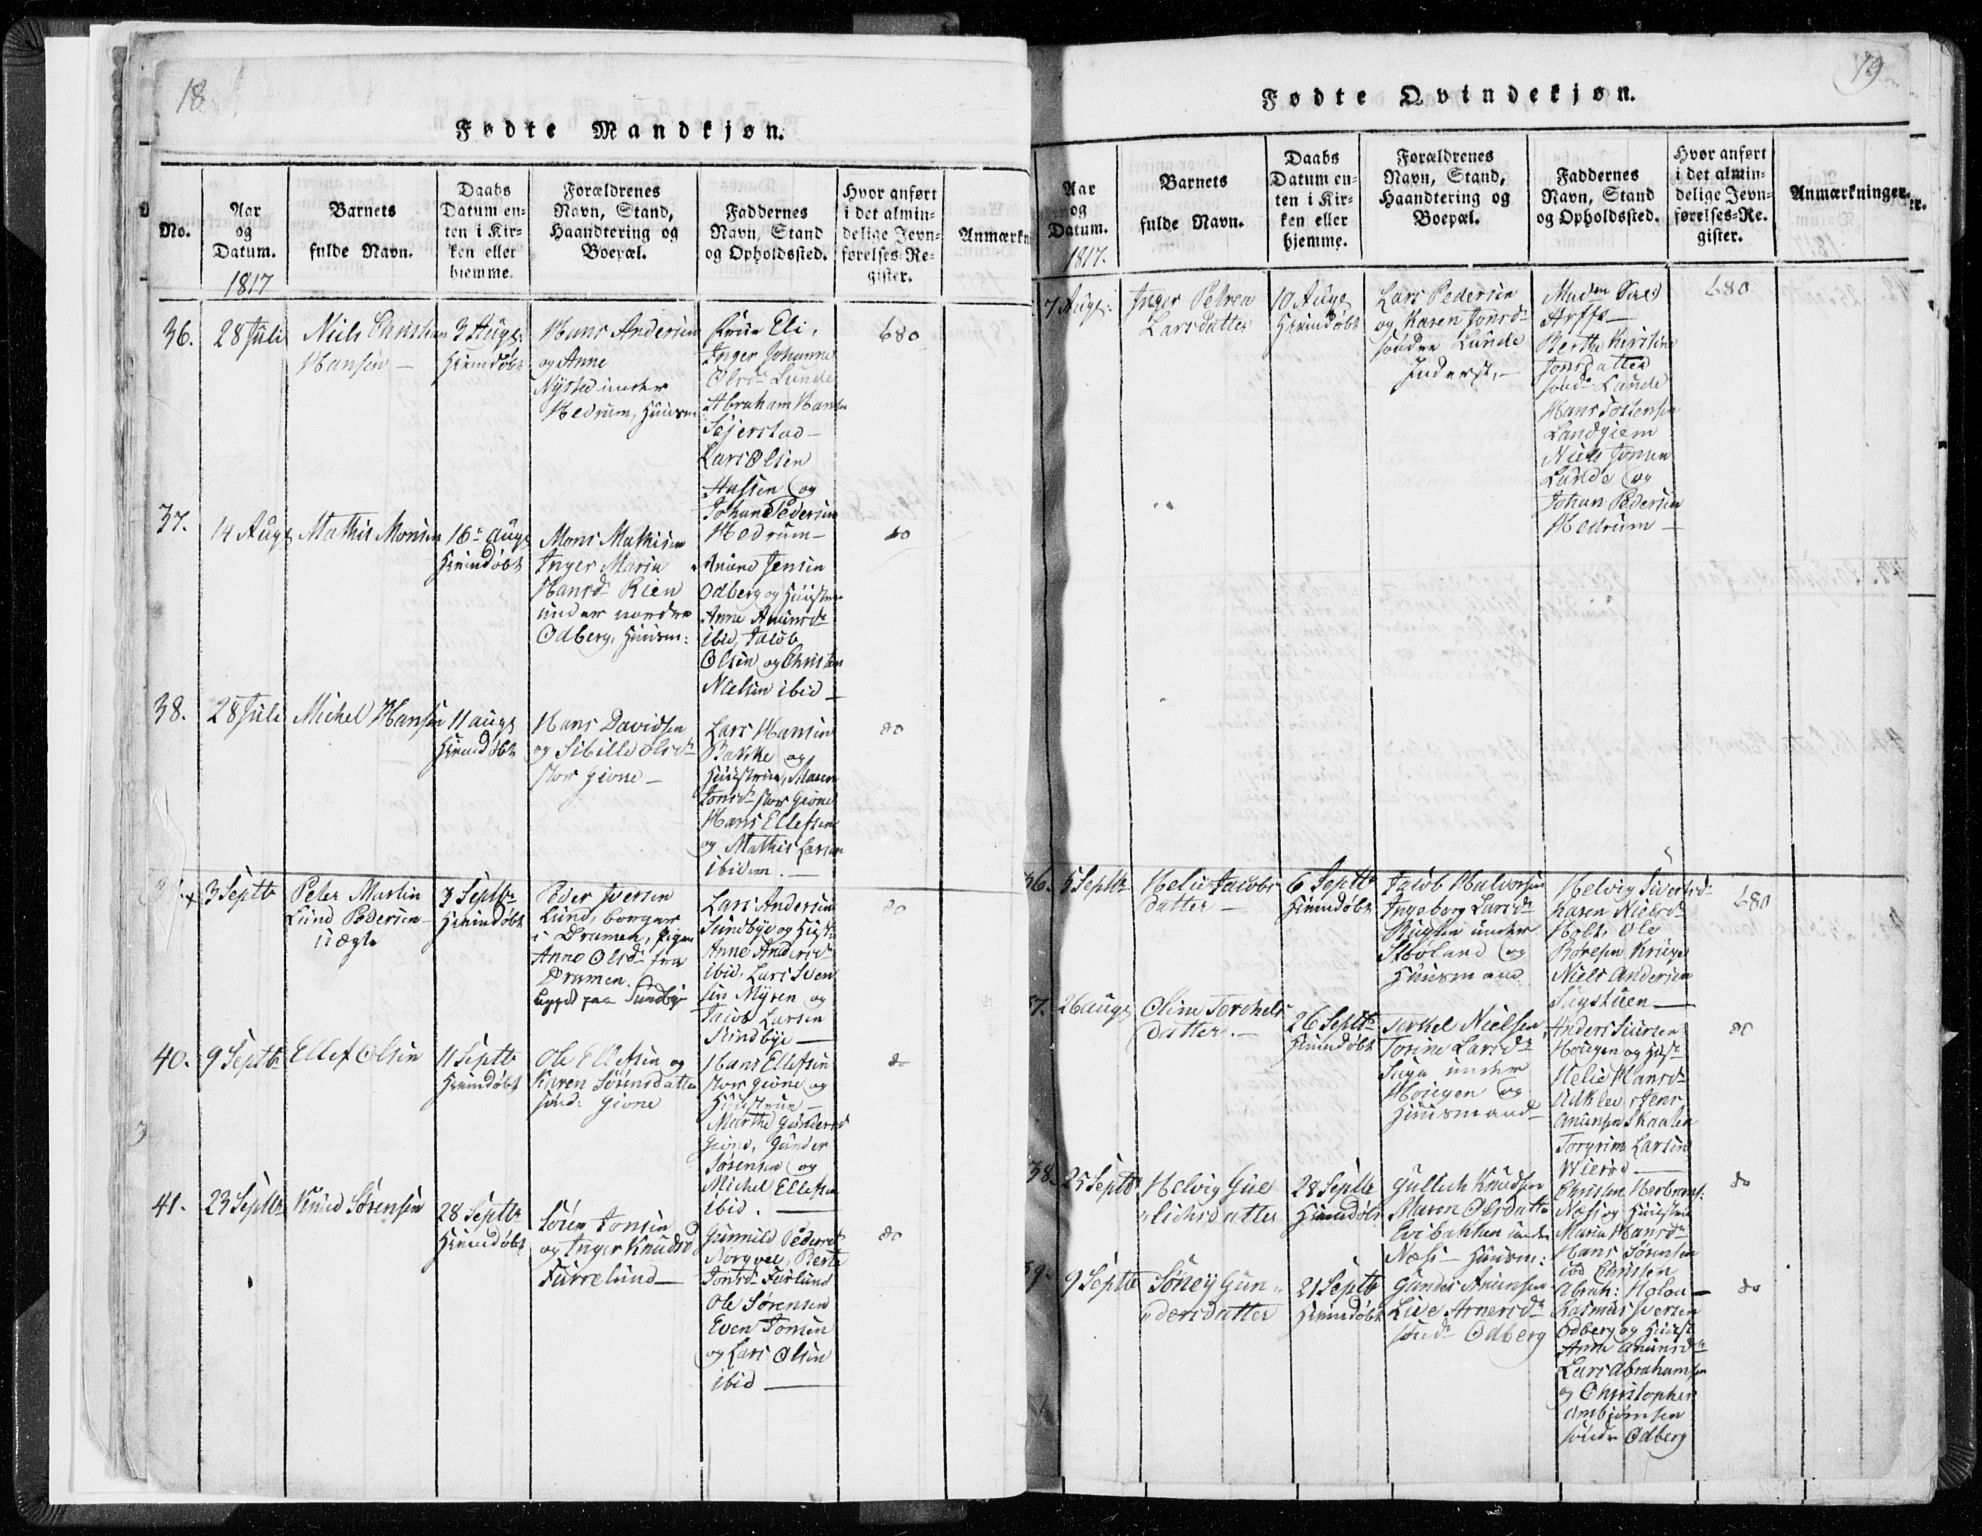 18
Fødte Mandkjøn.
No.
Aar
og
Datum.
1817
Barnets
fulde Navn.
Daabs
Datum en-
ten i Kir-
ken eller
hjemme.
Forældrenes
Navn, Stand,
Haandtering og
Boepæl.
Faddernes
Navn, Stand
og Opholdssted.
Hvor anført
i det almin-
delige Jevn-
førelses-Re-
gister.
Anmærkn
36.
28 Juli
Niels Christian
Hansen —
3 Augs:
Hiemdøbt
Hans Andersen
og Anne
Nysted under
Hedrum, Huusm
Eli,
Inger Johanne
Olsd. Lunde
Abraham Hansen
Sejerstad —
Lars Olsen
og
Johan Pedersen
Hedrum —
680
37.
14 Augs
Mathis Monsen
16 augs
Hiemdøbt
Mons Mathisen
Inger Maria
Hansd. Rien
under nordre
Odberg, Huusm:
Jensen
Odberg og Huustrue
Anne
ibid, Jacob
Olsen og Christen
Nielsen ibid —
do
38.
28 Juli
Michel Hansen
11 augs
Hiemdøbt
Hans Davidsen
og Sibille Olsd.
stor Gione —
Lars Hansen
Bakke og
Huustrue, Maren
Jonsd. stor Gione
Hans Ellefsen
og Mathis Larsen
ibidem. —
do
3 Septb
Peter Martin
Lund Pedersen —
uægte
8 Septbr
Hiemdøbt
Peder Iversen
Lund, borger
i Dramen, Pigen
Anne Olsd. fra
Dramen.
paa Sundbye
Lars Andersen
Sundbye og Hust.
Anne Andersd.
ibid, Lars Sven
sen Myren og
Jacob Larsen
Sundbye —
do
40.
9 Septbr
Ellef Olsen
11 Septb
Hiemdøbt
Ole Ellefsen og
Karen Sørensdatter
sønd: Gione
Hans Ellefsen
stor Gione og
Huustrue —
Marthe Gundersd
Gione, Gunder
Sørensen og
Michel Ellefsen
ibid. —
do
41.
23 Septbr
Knud Sørensen
28 Septbr
Hiemdøbt
Sören Jonsen
og Inger Knudsd
Furrelund —
Gunnild Pedersd
Berte
Jonsd. Furlund
Ole Sørensen
Even Jonsen
og Lars Olsen
ibid —
do
19
Fødte Qvindekjøn.
Aar
og
Datum.
1817.
Barnets
fulde Navn.
Daabs
Datum en-
ten i Kir-
ken eller
hjemme.
Forældrenes
Navn, Stand,
Haandtering og
Boepæl.
Faddernes
Navn, Stand
og Opholdssted.
Hvor anført
i det almin-
delige Jevn-
førelses-Re-
gister.
Anmærkninger.
7 Augs:
Inger Petrea
Larsdatter
10 Augs
Hiemdøbt
Lars Pedersen
og Karen Jonsd.
søndre Lunde
Inderst. —
Berthe Kirstine
Jonsdatter
sønd. Lunde
Hans Torstensen
Landgiem
Niels Jonsen
Lunde og
Johan Pedersen
Hedrum —
680
36.
5 Septbr
Helie Jacobs
datter —
6 Septb
Hiemdøbt
Jacob Halvorsen
Ingeborg Larsd.
under
og
Huusmand
Helvig Siversd.
Karen Nielsd.
Holt, Ole
Niels Andersen
680
37.
26 augs
Oline Torckels
datter. —
26 Septbr
Hiemdøbt
Torkel Nielsen
Torine Larsd.
Saga under
Hougen og
Huusmand
Anders
Hougen og Hust.
Helie Hansd.
Torgrim Larsen
Wierød —
do
38.
25 Septb
Helvig Gul
lichsdatter
28 Septb
Hiemdøbt
Gullich Knudsen
Maren Olsdatter
under
Næss — Huusm:
Christen Herbrans:
Næss og Huustrue
Maria Hansd.
Hans Sørensen
ibd Christen
Abrah: Holou —
do
39.
9 Septb
Søney Gun
dersdatter
21 Septb
Hiemdøbt
Gunder Anunsen
Live Arnersd.
sønd. Odberg
Rasmus Iversen
Odberg og Huust.
Anne Anunsd.
Lars Abrahamsen
og Christopher
Ambjørnsen
søndr Odberg
do